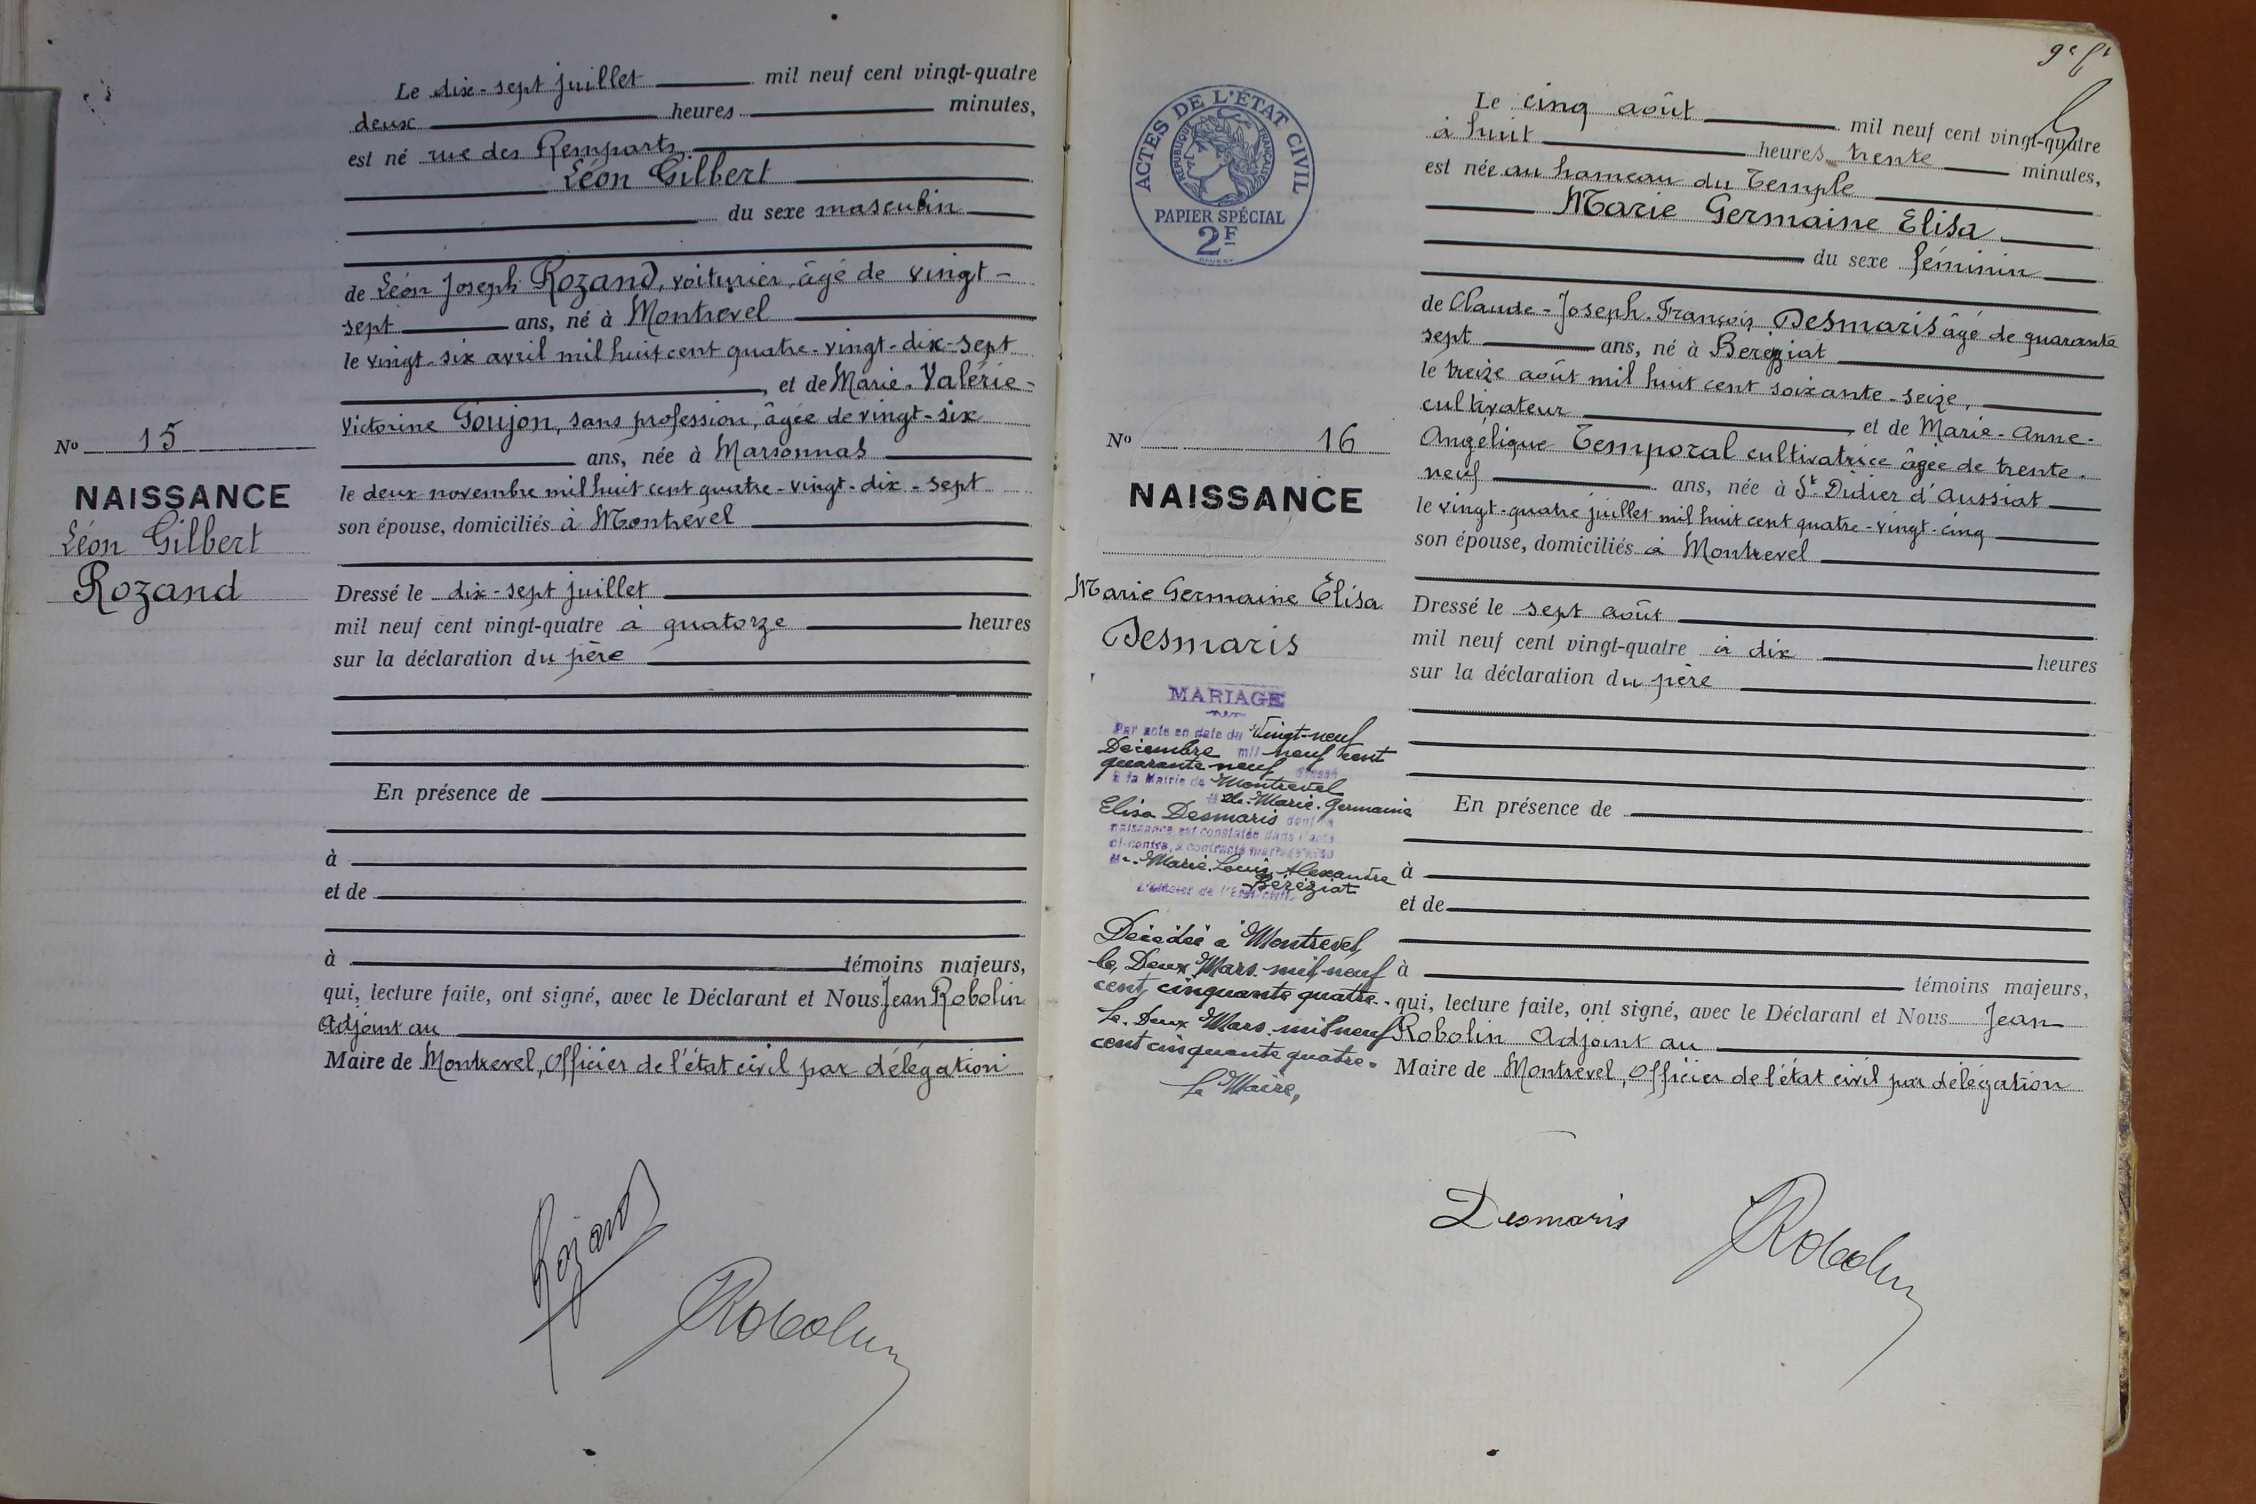 Le dix-sept juillet mil neuf cent vingt-quatre
deux heures minutes,
est né rue des Remparts
Léon Gilbert
du sexe masculin
de Léon Joseph Rozand, voiturier, âgé de vingt-
sept ans, né à Montrevel
le vingt-six avril mil huit cent quatre-vingt-dix-sept
, et de Marie-Valérie-
Victorine Goujon, sans profession, âgée de vingt-six
ans, née à Marsonnas
le deux novembre mil huit cent quatre-vingt-dix-sept
son épouse, domiciliés à Montrevel
Dressé le dix-sept juillet
mil neuf cent vingt-quatre à quatorze heures
sur la déclaration du père
En présence de
à
et de
à témoins majeurs,
qui, lecture faite, ont signé, avec le Déclarant et Nous Jean Robolin
Adjoint au
Maire de Montrevel, Officier de l'état civil par délégation
No 15
NAISSANCE
Léon Gilbert
Rozand
Rozand
Robolin
9e ft
ACTES DE L'ÉTAT CIVIL
RÉPUBLIQUE FRANÇAISE
PAPIER SPÉCIAL
2F
No 16
NAISSANCE
Marie Germaine Élisa
Desmaris
MARIAGE
Par acte en date du Vingt-neuf
Décembre mil neuf cent
quarante neuf dressé
à la Mairie de Montrevel
Marie-Germaine
Elisa Desmaris dont la
naissance est constatée dans l'acte
ci-contre, a contracté mariage avec
Mr. Marie Louis Alexandre
Béréziat
L'Officier de l'État civil,
Décédée à Montrevel
le Deux Mars mil neuf
cent cinquante quatre.
Le Deux Mars mil neuf
cent cinquante quatre.
Le Maire,
Le cinq août mil neuf cent vingt-quatre
à huit heures trente minutes,
est née au hameau du Temple
Marie Germaine Elisa
du sexe féminin
de Claude-Joseph-François Desmaris âgé de quarante
sept ans, né à Bereziat
le treize août mil huit cent soixante-seize,
cultivateur et de Marie-Anne-
Angélique Temporal cultivatrice âgée de trente-
neuf ans, née à St Didier d'Aussiat
le vingt-quatre juillet mil huit cent quatre-vingt-cinq
son épouse, domiciliés à Montrevel
Dressé le sept août
mil neuf cent vingt-quatre à dix heures
sur la déclaration du père
En présence de
à
et de
à témoins majeurs,
qui, lecture faite, ont signé, avec le Déclarant et Nous Jean
Robolin Adjoint au
Maire de Montrevel, Officier de l'état civil par délégation
Desmaris
Robolin